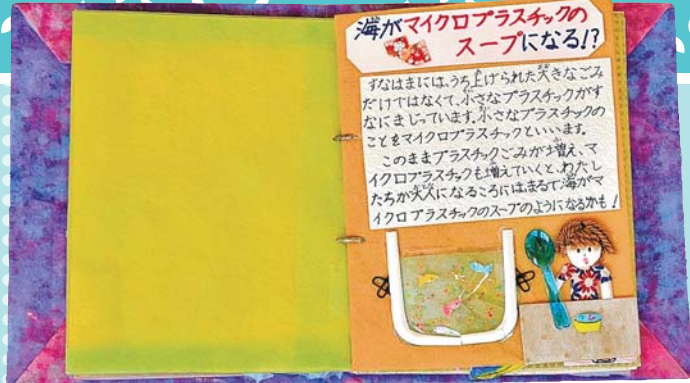 海がマイクロプラスチックの
スープになる!?
すなはまには、うち上げられた大きなごみ
だけではなくて、小さなプラスチックがす
なにまじっています。小さなプラスチックの
ことをマイクロプラスチックといいます。
このままプラスチックごみが増え、マ
イクロプラスチックも増えていくと、わたし
たちが大人になるころには、まるで海がマ
イクロプラスチックのスープのようになるかも!